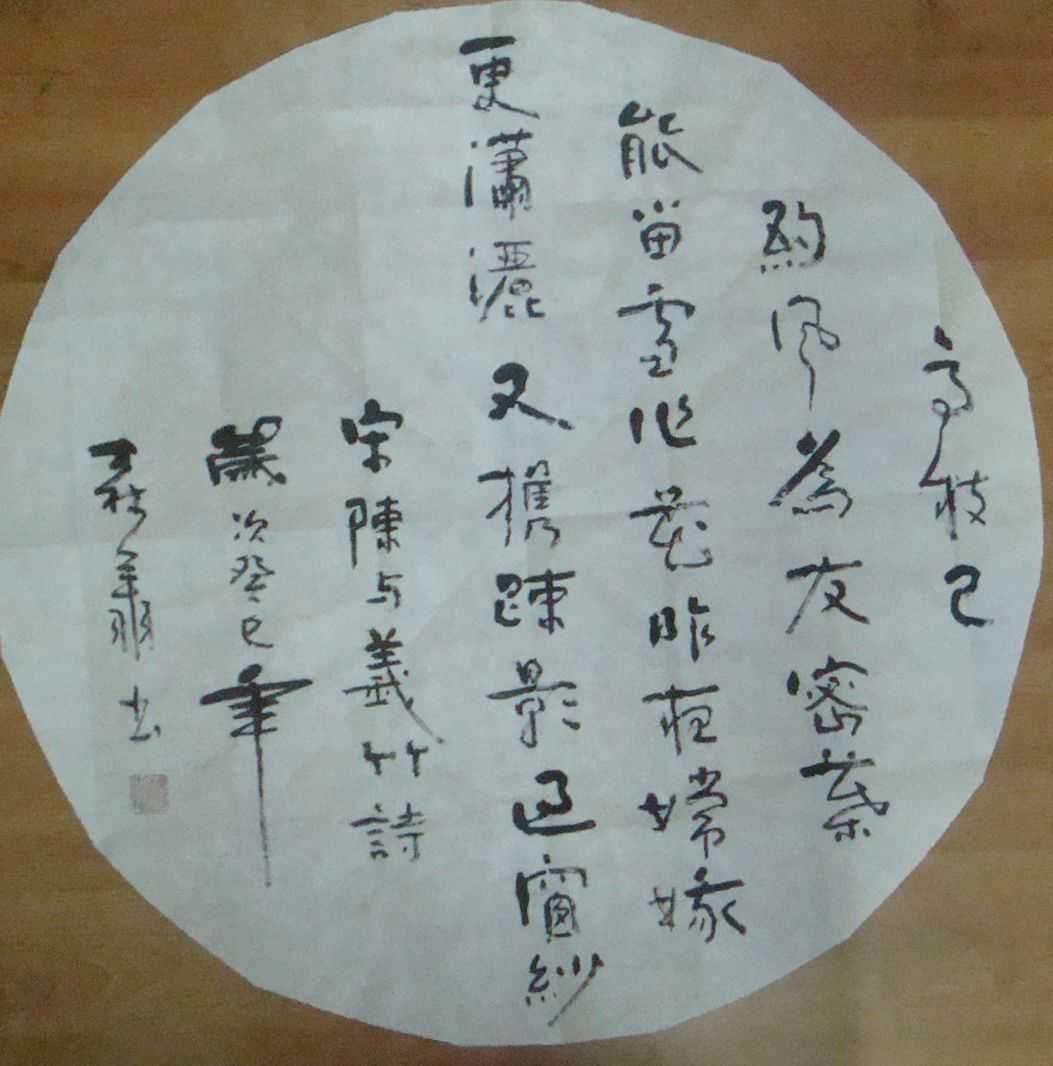 高枝已
約风為友密葉
能留雪作花昨夜嫦娥
更瀟灑又携疎影過窗紗
宋陳与義竹詩
歲次癸巳年
书